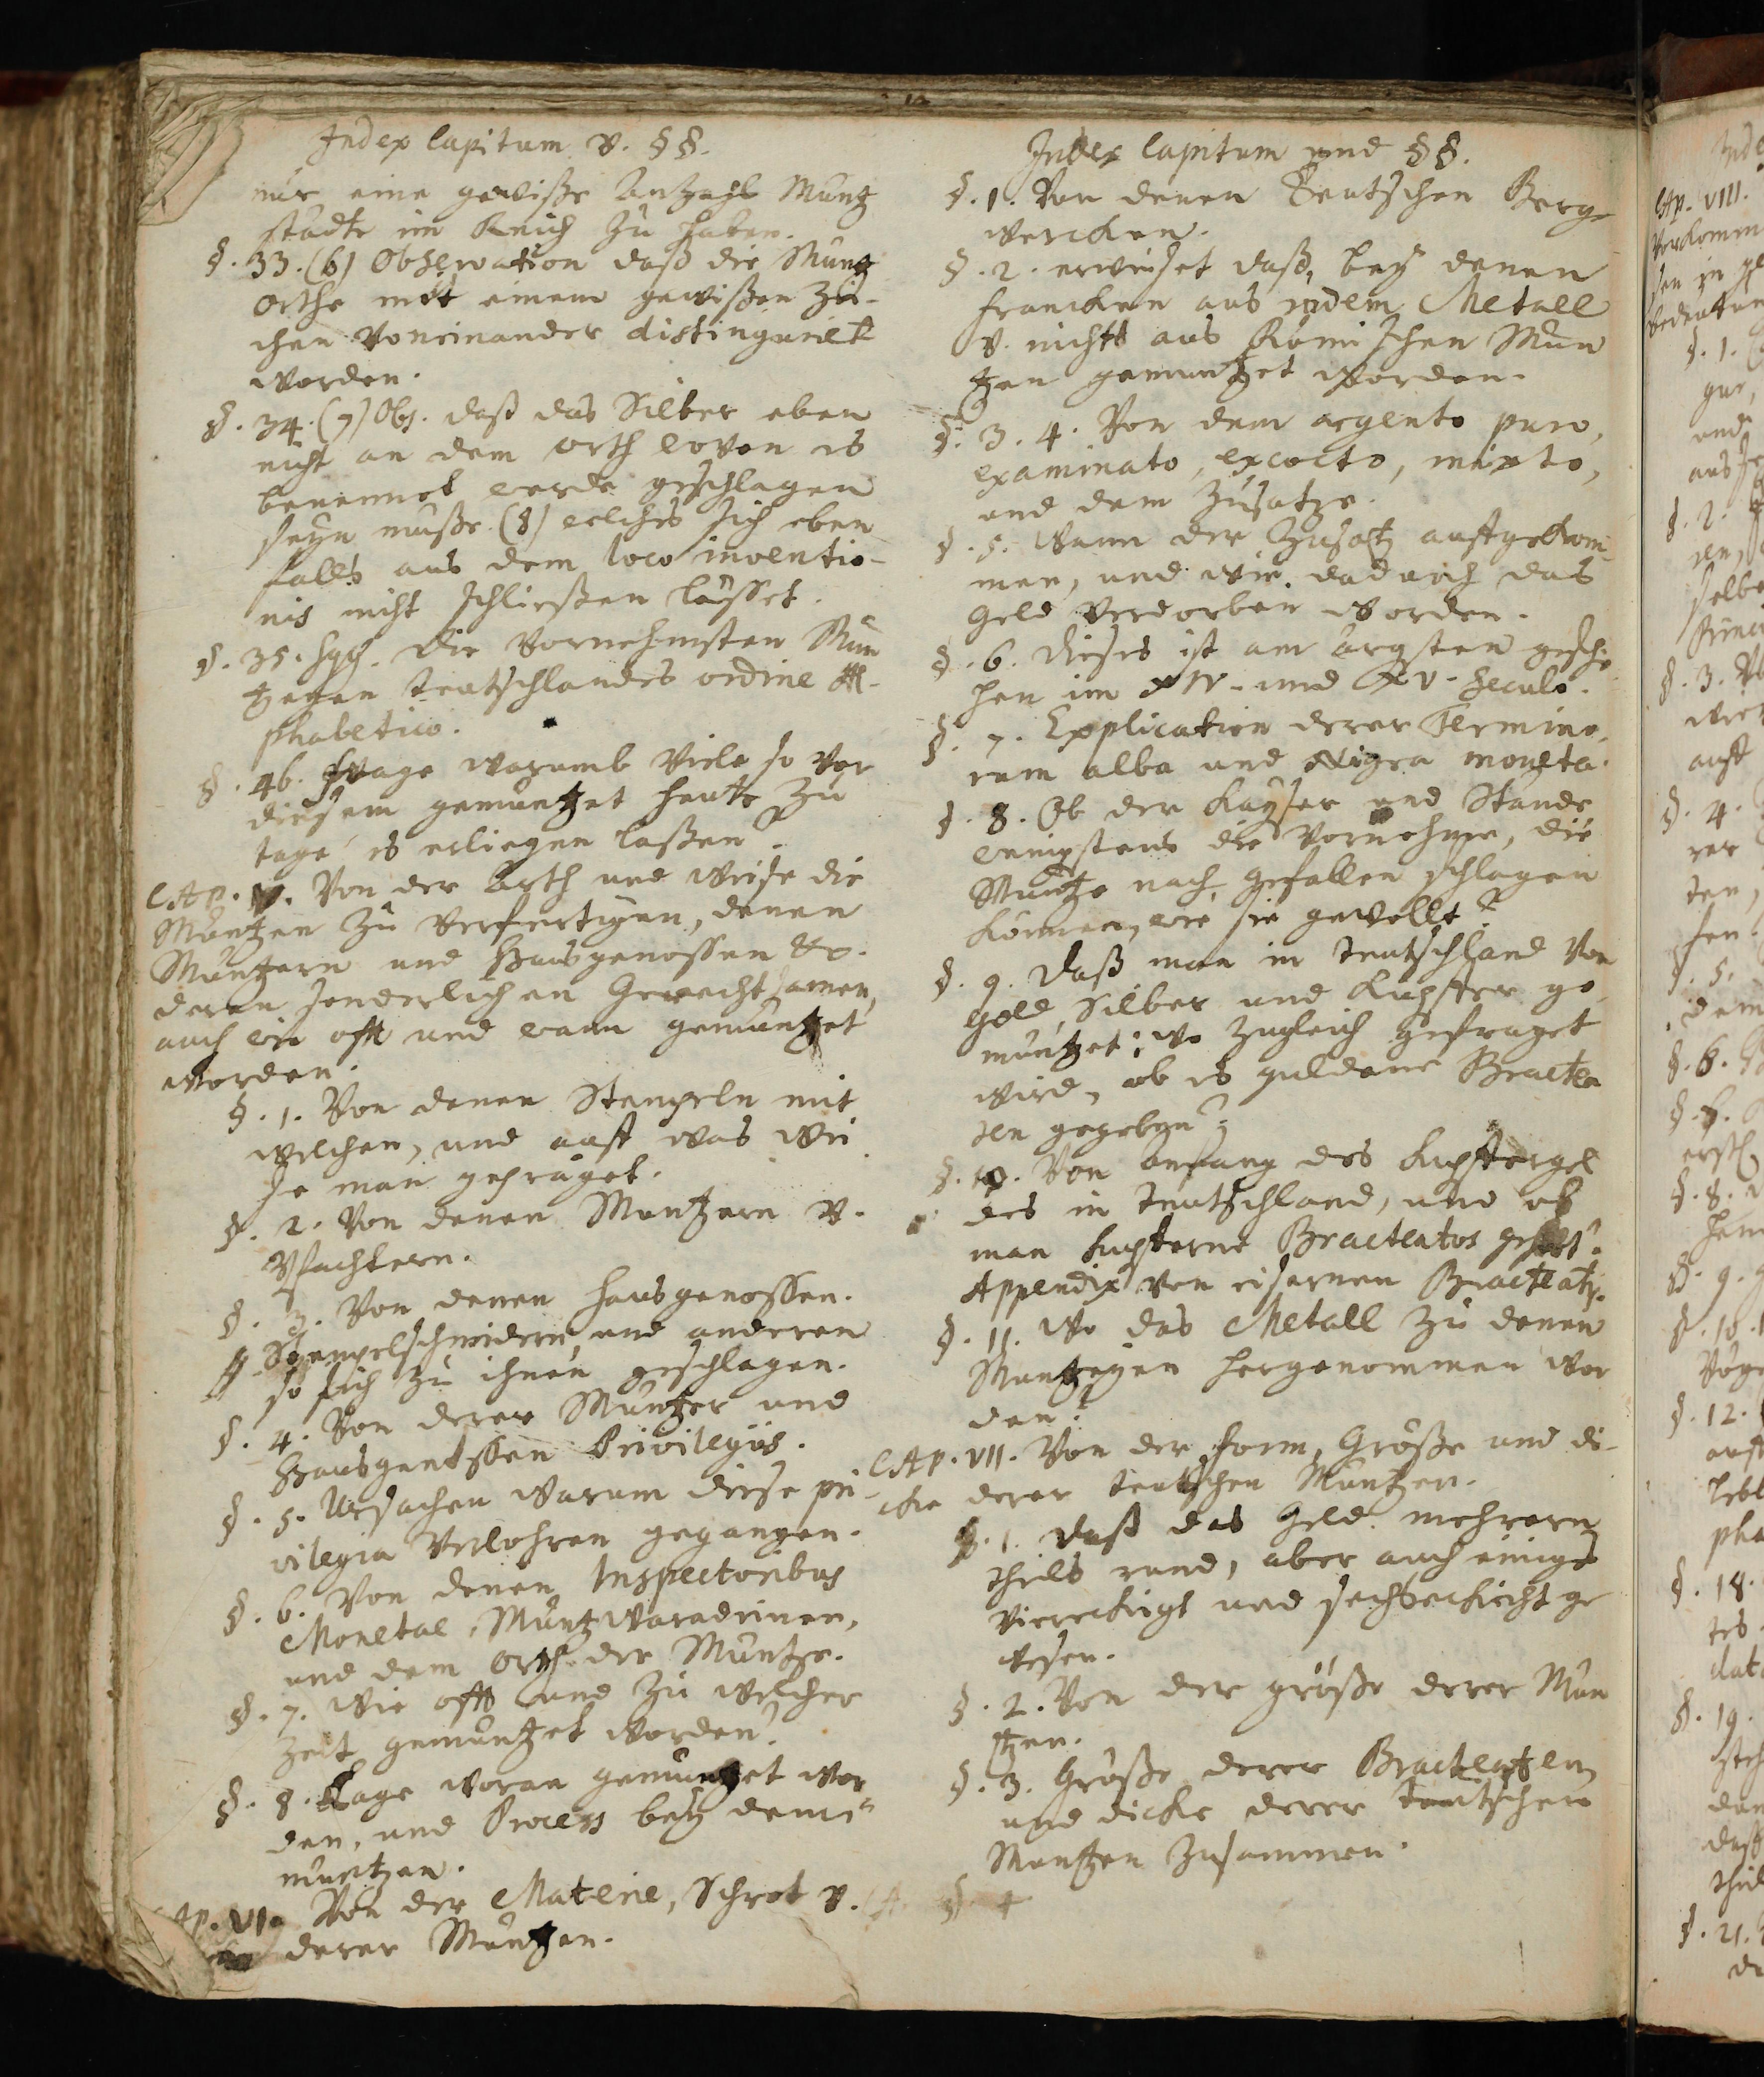 Index Capitum v. §§.
nur eine gewiße Anzahl Müntz
städte im Reich zu haben.
§. 33. (6) Observation daß die Müntz
orthe mit einem gewißen Zei-
chen voneinander distinguiret
worden.
§. 34. (7) Obs. daß das Silber eben
nicht an dem orth wovon es
benennet werde geschlagen
seyn müße. (8) welches sich eben
falls aus dem loco inventio-
nis nicht schließen lässet.
§. 35. sqq. Die Vornehmsten Mün
tzeyen teutschlandes ordine Al-
phabetico.
§. 46. Frage warumb Viele so vor
diesem gemüntzet heute zu
tage es erliegen laßen?
CAp. V. Von der Arth und Weise die
Müntzen zu verfertigen, denen
Müntzern und Hausgenossen &c.
deren sonderlichen Gerechtsamen,
auch wie offt und wann gemüntzet
worden.
§. 1. Von denen Stempeln mit
welchen, und auff was Wei
se man gepräget.
§. 2. Von denen Müntzern v.
Pfachtern.
§. 3. Von denen Hausgenossen.
Stempelschneidern, und anderen
so sich zu ihnen geschlagen.
§. 4. Von derer Müntzer und
Hausgenossen Privilegiis.
§. 5. Ursachen warum diese pri-
vilegia Verlohren gegangen.
§. 6. Von denen Inspectoribus
Monetae, Müntzwaradeinen,
und dem Orth der Müntze.
§. 7. Wie offt und zu welcher
Zeit gemüntzet worden?
§. 8. Tage woran gemüntzet wor
den, und Process bey dem
müntzen.
Ap. VI. Von der Materie, Schrot v.
derer Müntzen.
Index Capitum und §§.
§. 1. Von denen Teutschen Berg-
wercken.
§. 2. erweiset daß, bey denen
Francken aus rudem Metall
v. nichts aus Römischen Mün
tzen gemüntzet worden.
§. 3. 4. Von dem argento puro,
examinato, excocto, mixto,
und dem Zusatze.
§. 5. Wann der Zusatz auffgekom-
men, und wie dadurch das
Geld verdorben worden.
§. 6. Dieses ist am ärgsten gesche
hen im XIV- und XV- Seculo.
§. 7. Explication derer Termino-
rum alba und Nigra moneta.
§. 8. Ob der Kayser und Stände
wenigstens die Vornehme, die
Müntze nach gefallen schlagen
können, wie sie gewollt?
§. 9. Daß man in teutschland Von
Gold, Silber und Kupffer ge
müntzet; wo zugleich gefraget
wird, ob es guldene Bractea
ten gegeben?
§. 10. Von anfang des Kupffergel
des in teutschland, und ob
man Kupfferne Bracteatos gehabt?
Appendix von eisernen Bracteatis.
§. 11. Wo das Metall zu denen
Müntzeyen hergenommen wor
den?
CAp. VII. Von der Form, Größe und di-
cke derer teutschen Müntzen.
§. 1. Daß das Geld mehrern
theils rund, aber auch einiges
Viereckigt und sechseckicht ge
wesen.
§. 2. Von der größe derer Mün
tzen.
§. 3. Größe derer Bracteaten
und dicke derer teutschen
Müntzen zusammen.
§. 4
CAp. VIII.
§. 1.
und
§. 2.
§. 3.
auff
§. 4.
ten,
§. 5.
§. 6.
§. 8.
§. 9.
§. 10.
§. 12.
§. 18.
§. 19.
§. 21.